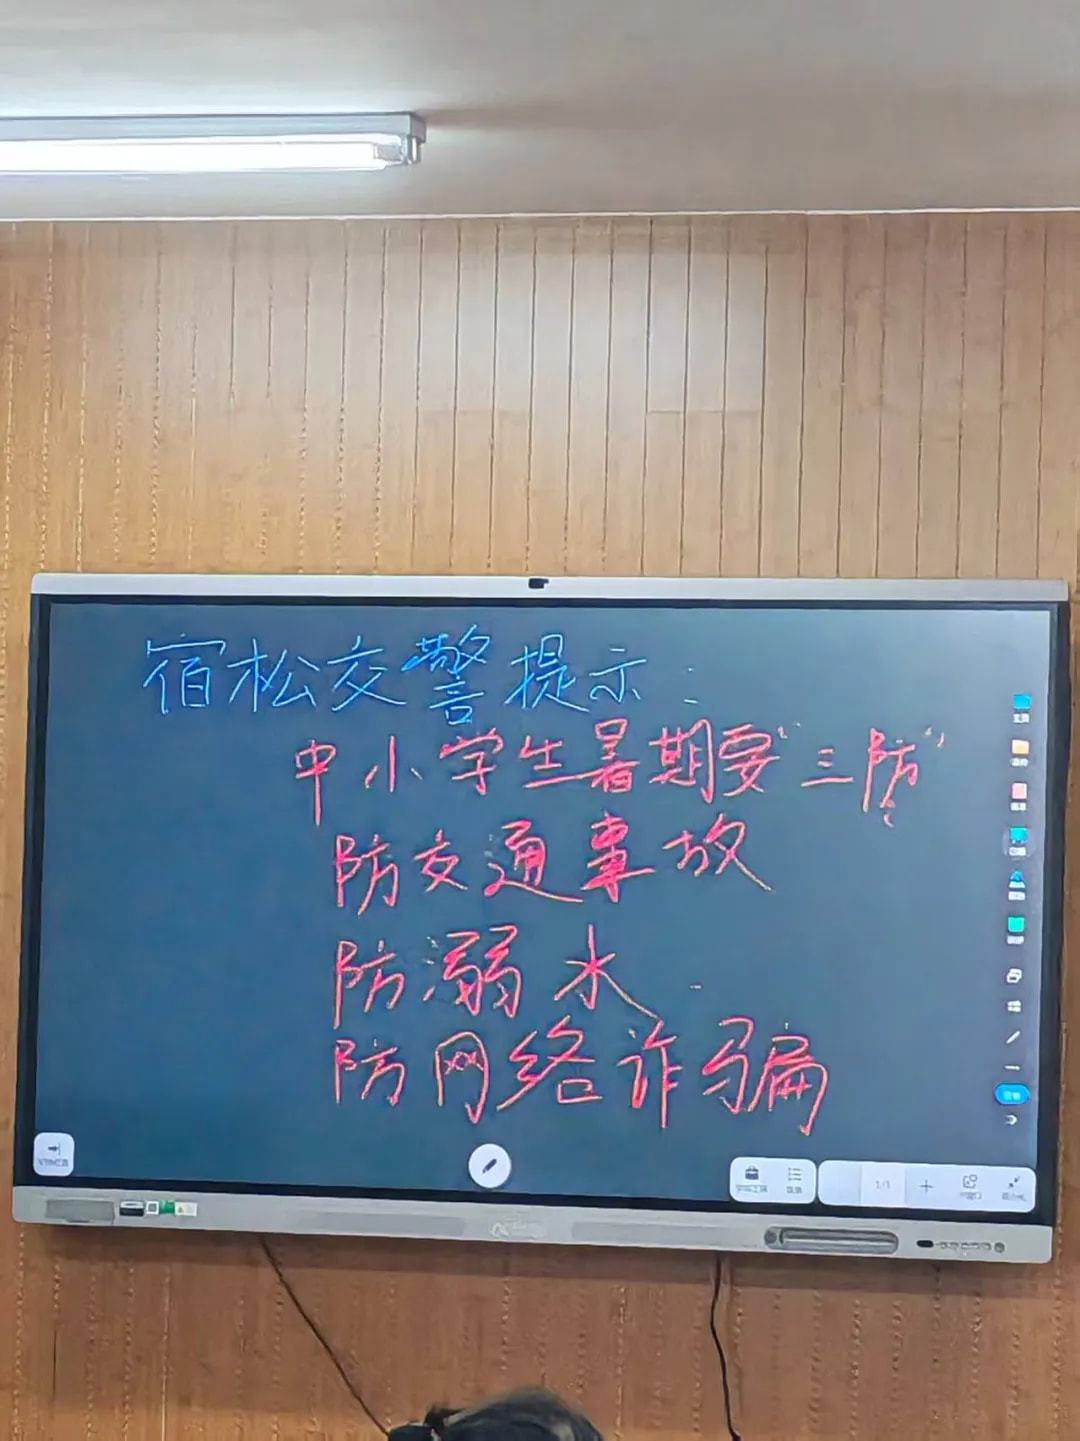 宿松交警提示：
中小学生暑期要“三防”
防交通事故
防溺水
防网络诈骗
1/1